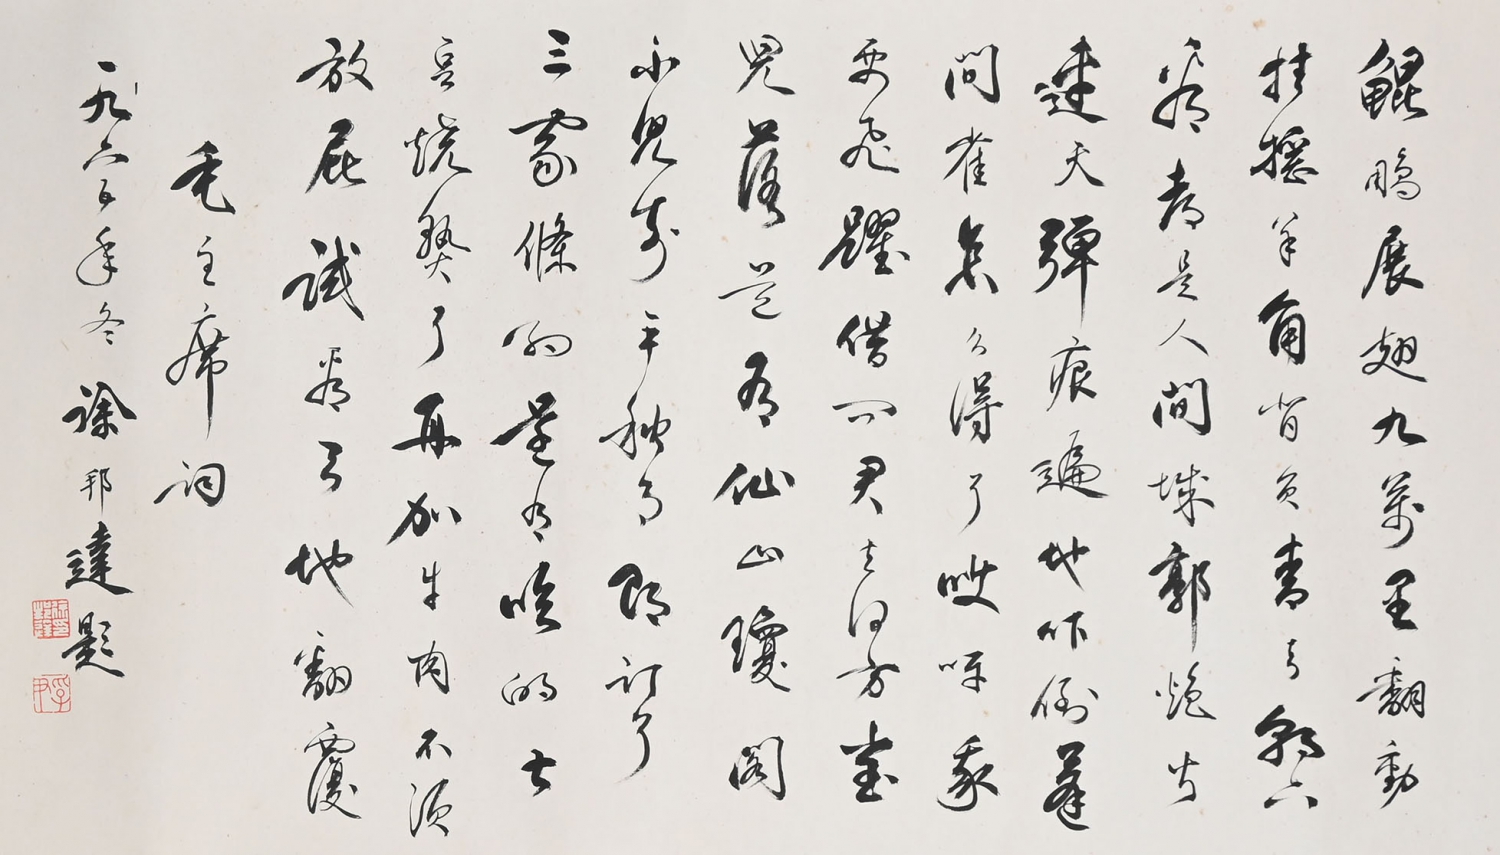 鯤鵬展翅九萬里翻動
扶搖羊角背負青天朝下
看都是人間城郭炮火
連天彈痕遍地吓倒蓬
間雀怎么得了哎呀我
要飛躍借問君去何方雀
兒答道有仙山瓊閣
不見前年秋月朗訂了
三家條約還有吃的土
豆燒熟了再加牛肉不須
放屁試看天地翻覆
毛主席詞
一九六五年冬徐邦達題